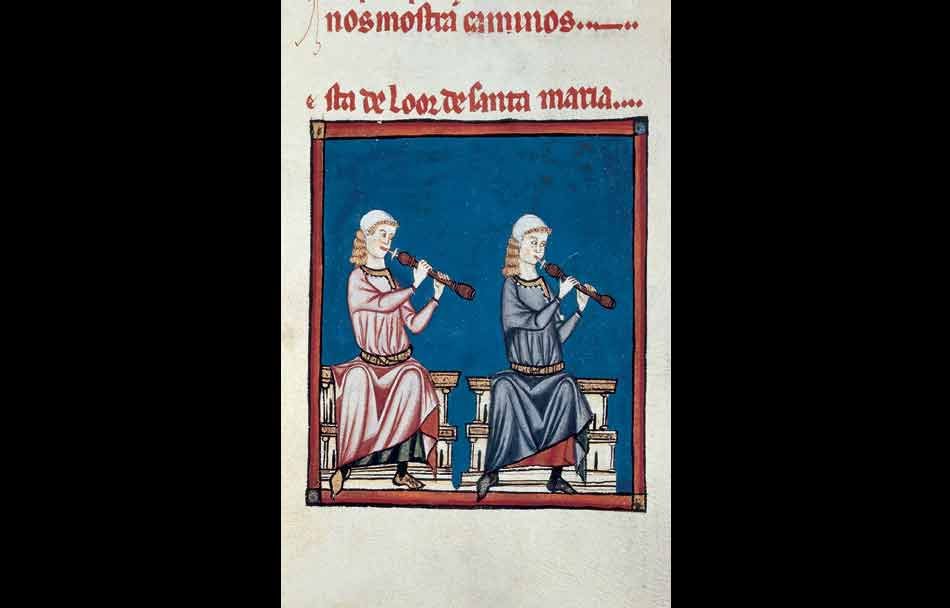 nos mostrá caminos....
esta de loor de santa maria....